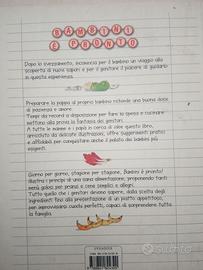 BAMBINI
È PRONTO
Dopo lo svezzamento, incomincia per il bambino un viaggio alla
scoperta di nuovi sapori e per il genitore il piacere di guidarlo
in questa esperienza.
Preparare la pappa al proprio bambino richiede una buona dose
di pazienza e amore.
Tempi da record a disposizione per fare la spesa e cucinare
mettono alla prova la fantasia dei genitori.
A tutte le mamme e i papà in cerca di idee questo libro,
arricchito da delicate illustrazioni, offre suggerimenti pratici
e affidabili per conquistare anche il palato dei bambini più
esigenti.
Giorno per giorno, stagione per stagione, Bambini è pronto!
illustra i principi di una sana alimentazione, proponendo tanti
menù golosi per pranzi e cene semplici e allegri.
Tutto quello che i genitori devono sapere, dalla scelta degli
ingredienti fino alla presentazione di un piatto appetitoso,
per improvvisarsi cuochi perfetti, capaci di sorprendere tutta
la famiglia.
subito